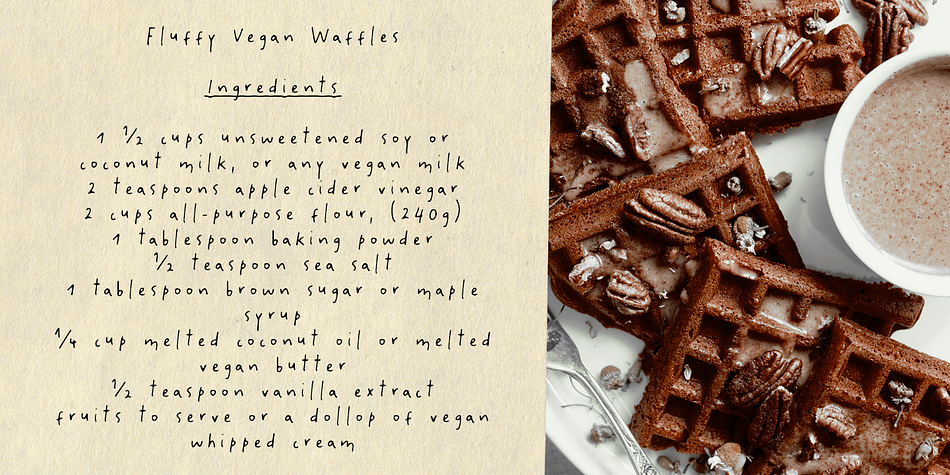 Fluffy Vegan Waffles
Ingredients
1 ½ cups unsweetened soy or
coconut milk, or any vegan milk
2 teaspoons apple cider vinegar
2 cups all-purpose flour, (240g)
1 tablespoon baking powder
½ teaspoon sea salt
1 tablespoon brown sugar or maple
syrup
¼ cup melted coconut oil or melted
vegan butter
½ teaspoon vanilla extract
fruits to serve or a dollop of vegan
whipped cream